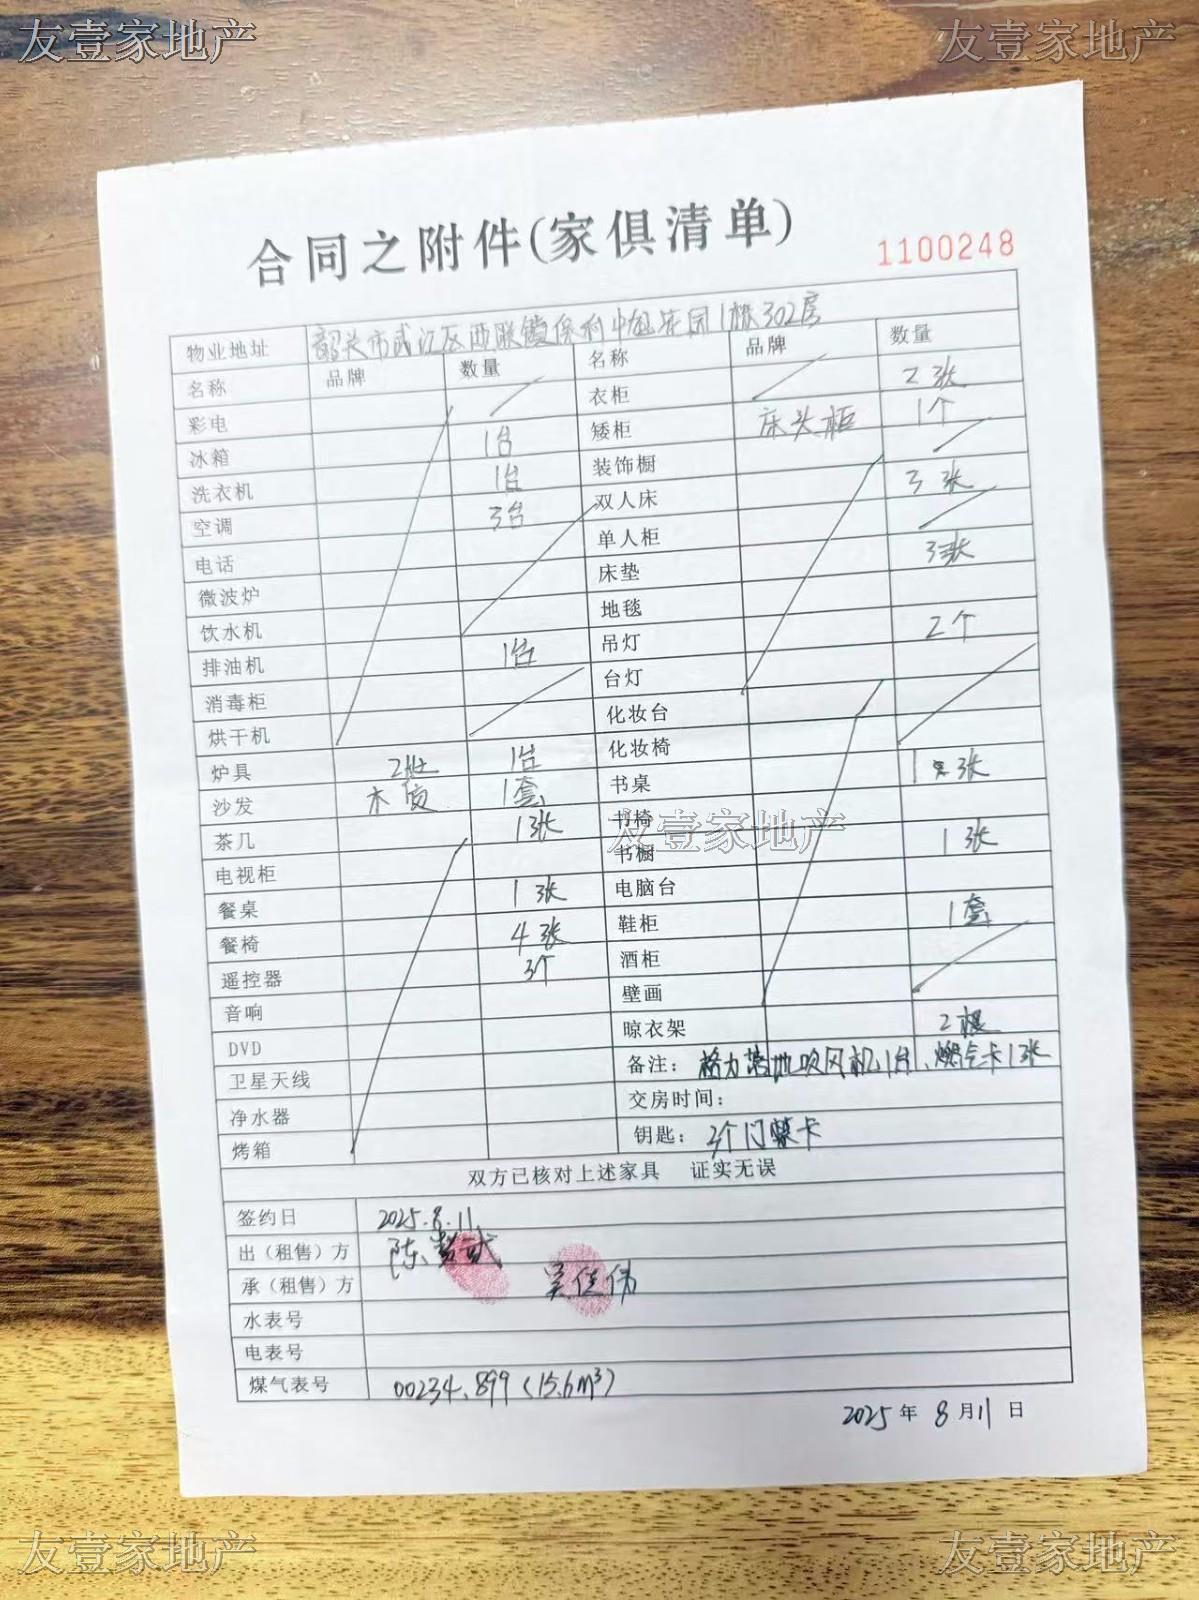 友壹家地产 友壹家地产
合同之附件(家俱清单)
1100248
物业地址 韶关市武江区西联镇保利中旭花园1栋302房
名称 品牌 数量 名称 品牌 数量
彩电 衣柜 2张
冰箱 1台 矮柜 床头柜 1个
洗衣机 1台 装饰橱
空调 3台 双人床 3张
电话 单人柜
微波炉 床垫 3张
饮水机 地毯
排油机 1台 吊灯 2个
消毒柜 台灯
烘干机 化妆台
炉具 2灶 1台 化妆椅
沙发 木质 1套 书桌 1张
茶几 1张 书椅
友壹家地产
电视柜 书橱 1张
餐桌 1张 电脑台
餐椅 4张 鞋柜 1套
遥控器 3个 酒柜
音响 壁画
DVD 晾衣架 2根
卫星天线 备注: 格力落地吹风机1台、燃气卡1张
净水器 交房时间:
烤箱 钥匙: 3个门禁卡
双方已核对上述家具 证实无误
签约日 2025.8.11
出（租售）方 陈
承（租售）方 吴佳伟
水表号
电表号
煤气表号 00234.899(15.6m³)
2025年8月11日
友壹家地产 友壹家地产